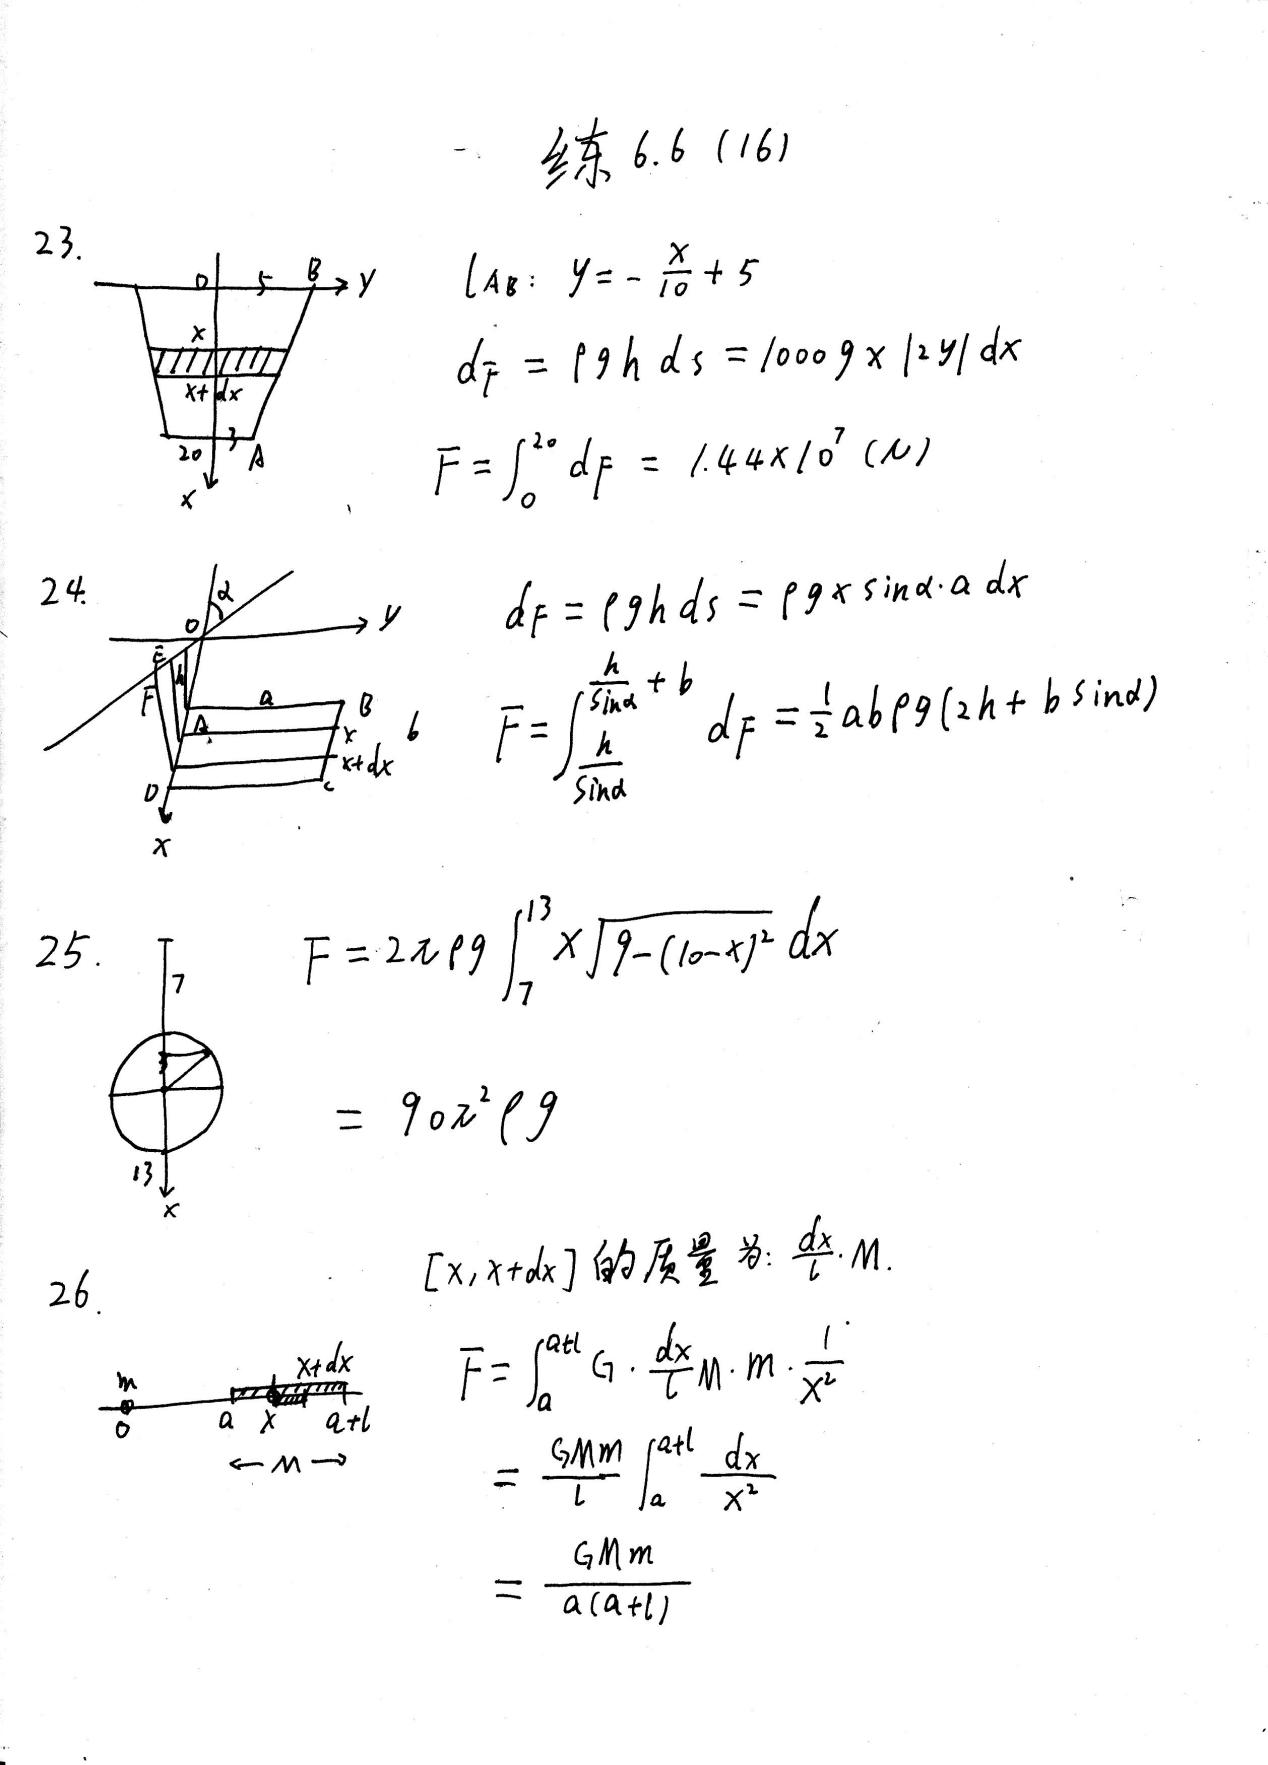 练 6.6 (16)
23.
O 5 B y
x
x+dx
20 3 A
x
l_{AB}: y = -\frac{x}{10} + 5
dF = ρgh ds = 1000g x |2y| dx
F = ∫_0^{20} dF = 1.44×10^7 (N)
24.
α
O y
E h
F a B
A x b
x+dx
D C
x
dF = ρgh ds = ρg x sinα·a dx
F = ∫_{\frac{h}{sinα}}^{\frac{h}{sinα}+b} dF = \frac{1}{2}abρg(2h + b sinα)
25.
7
3
13
x
F = 2πρg ∫_7^{13} x\sqrt{9-(10-x)^2} dx
= 90π^2ρg
26.
m x+dx
O a x a+l
← M →
[x, x+dx] 的质量为: \frac{dx}{l}·M.
F = ∫_a^{a+l} G·\frac{dx}{l}M·m·\frac{1}{x^2}
= \frac{GMm}{l} ∫_a^{a+l} \frac{dx}{x^2}
= \frac{GMm}{a(a+l)}